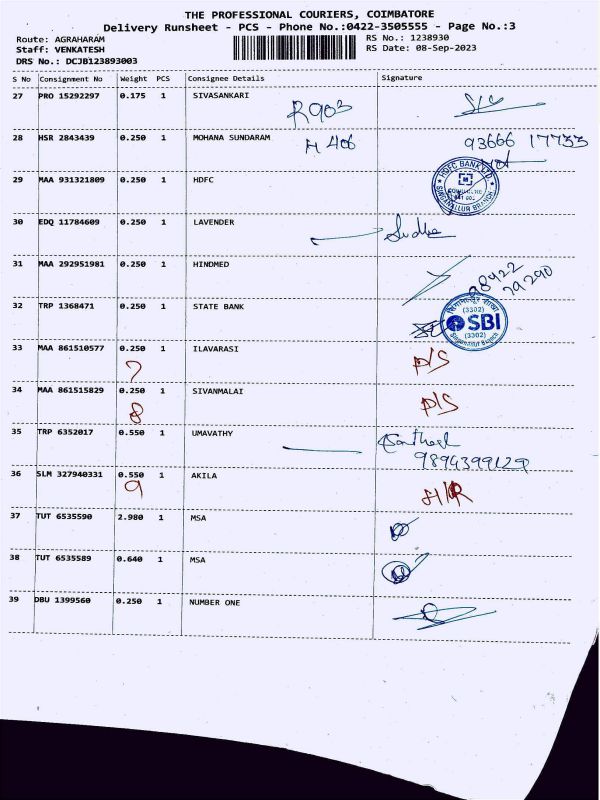 THE PROFESSIONAL COURIERS, COIMBATORE
Delivery Runsheet - PCS - Phone No.:0422-3505555 - Page No.:3
Route: AGRAHARAM RS No.: 1238930
Staff: VENKATESH RS Date: 08-Sep-2023
DRS No.: DCJB123893003
S No Consignment No Weight PCS Consignee Details Signature
27 PRO 15292297 0.175 1 SIVASANKARI R903
28 HSR 2843439 0.250 1 MOHANA SUNDARAM H 406 93666 17733
29 MAA 931321809 0.250 1 HDFC
HDFC BANK LTD
SINGANALLUR BRANCH
30 EDQ 11784609 0.250 1 LAVENDER Sudha
31 MAA 292951981 0.250 1 HINDMED 98422
79290
32 TRP 1368471 0.250 1 STATE BANK
(3302)
SBI
(3302)
Singanallur Branch
33 MAA 861510577 0.250 1 ILAVARASI D/S
7
34 MAA 861515829 0.250 1 SIVANMALAI D/S
8
35 TRP 6352017 0.550 1 UMAVATHY
9894399129
36 SLM 327940331 0.550 1 AKILA
9
37 TUT 6535590 2.980 1 MSA
38 TUT 6535589 0.640 1 MSA
39 DBU 1399560 0.250 1 NUMBER ONE